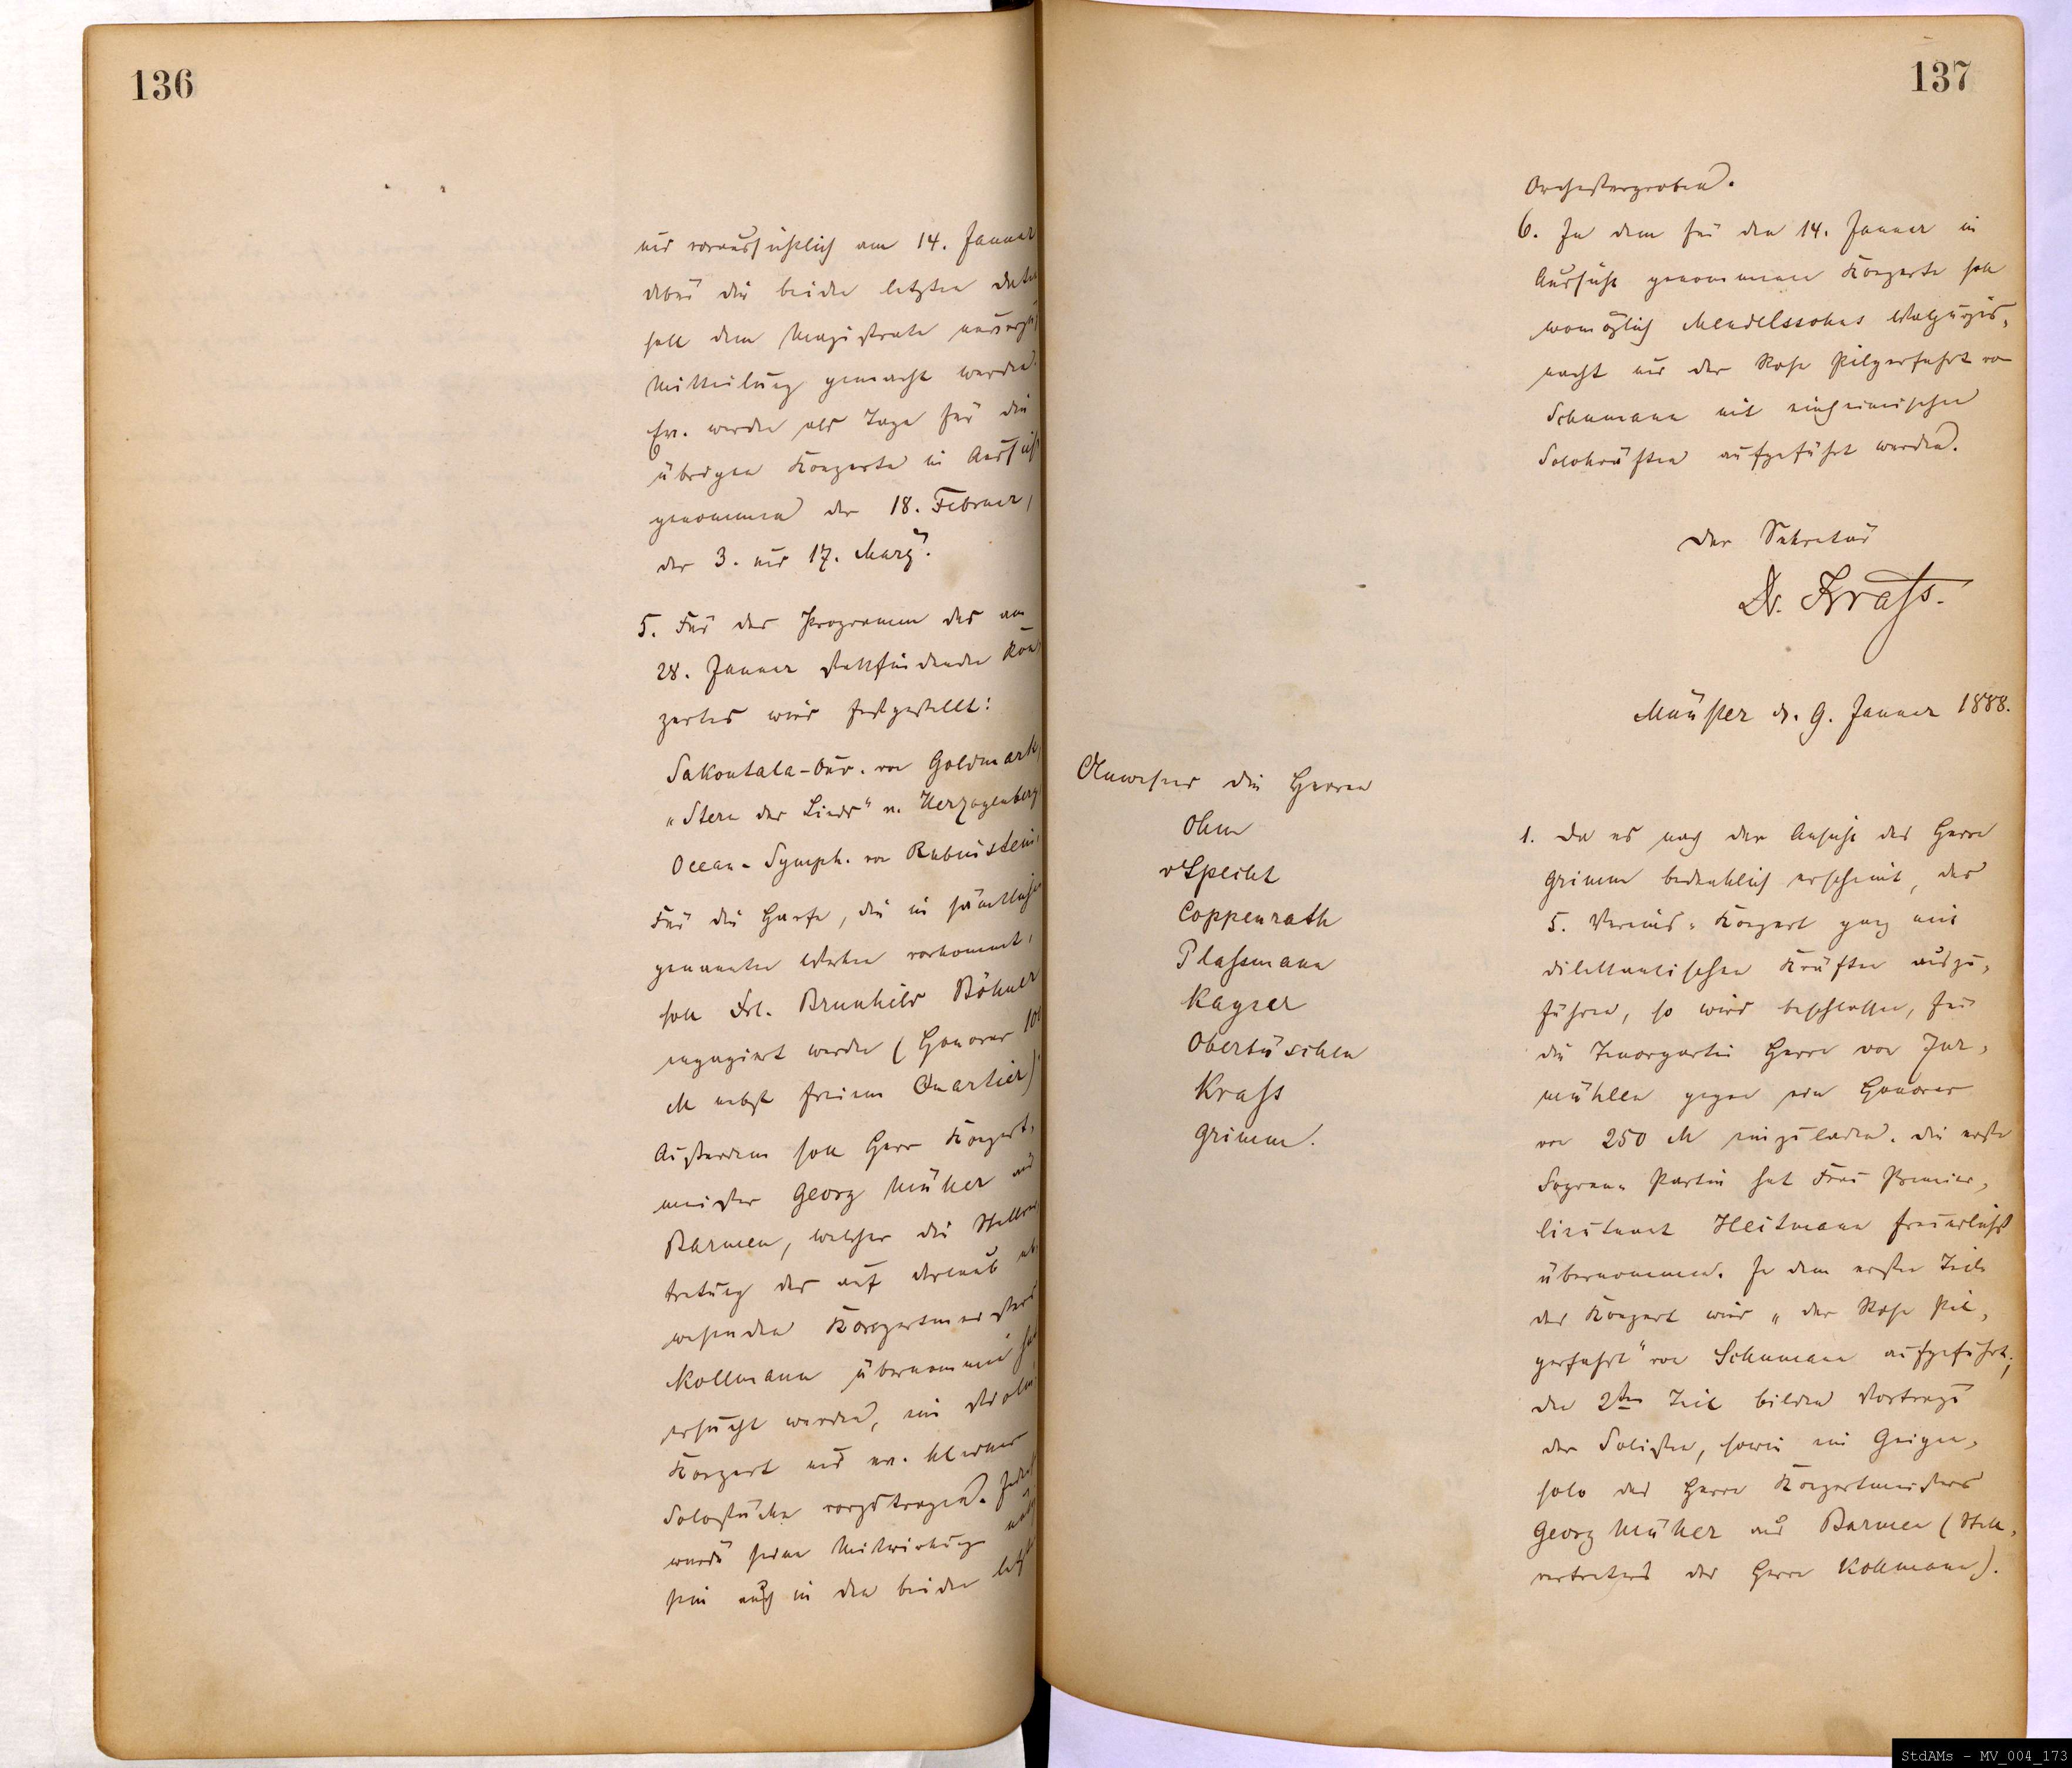 136
und voraussichtlich am 14. Januar
über die beiden letzten Daten
soll dem Magistrate
Mitteilung gemacht werden.
Er. werden als Tage für die
übrigen Konzerte in Aussicht
genommen der 18. Februar,
der 3. und 17. März.
5. Für das Programm des am
28. Januar stattfindenden Kon-
zertes wird festgestellt:
Sakontala-Ouv. von Goldmark,
„Stern des Lieds" v. Herzogenberg
Ocean-Symph. von Rubinstein.
Für die Harfe, die in sämtlichen
genannten Werken vorkommt,
soll Frl. Brunhild Böhner
engagiert werden (Honorar 100
M nebst freiem Quartier).
Außerdem soll Herr Konzert-
meister Georg Müller aus
Barmen, welcher die Stellver-
tretung des auf Urlaub ab-
wesenden Konzertmeisters
Kollmann übernommen hat
ersucht werden, ein Violin-
Konzert und ev. kleinere
Solostücke vorzutragen.
würde seine Mitwirkung
sein auch in den beiden letzten
137
Orchesterproben.
6. In dem für den 14. Januar in
Aussicht genommenen Konzerte soll
womöglich Mendelssohns Walpurgis-
nacht und der Rose Pilgerfahrt von
Schumann mit einheimischen
Solokräften aufgeführt werden.
Der Sekretär
Dr. Krass.
Münster d. 9. Januar 1888.
Anwesend die Herren
Ohm
v Specht
Coppenrath
Plassmann
Kayser
Obertüschen
Krass
Grimm.
1. Da es nach der Ansicht des Herrn
Grimm bedenklich erscheint, das
5. Vereins-Konzert ganz mit
dilettantischen Kräften auszu-
führen, so wird beschlossen, für
die Tenorpartie Herrn von Zur-
mühlen gegen ein Honorar
von 250 M einzuladen. Die erste
Sopran-Partie hat Frau Premier-
lieutenant Heitmann freundlichst
übernommen. In dem ersten Teile
des Konzert wird „der Rose Pil-
gerfahrt" von Schumann aufgeführt;
den 2ten Teil bilden Vorträge
der Solisten, sowie ein Geigen-
solo des Herrn Konzertmeisters
Georg Müller aus Barmen (Stell-
vertreters des Herrn Kollmann).
StdAMs - MV_004_173